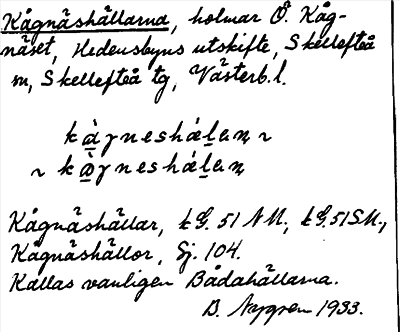 Kågnäshällarna, holmar Ö. Kåg-
näset, Hedensbyns utskifte, Skellefteå
sn, Skellefteå tg, Västerb. l.
Kågnäshällar, k G. 51 NU, k G. 51 SU,
Kågnäshällor, Sj. 104.
Kallas vanligen Bådahällarna.
B. Nygren 1933.